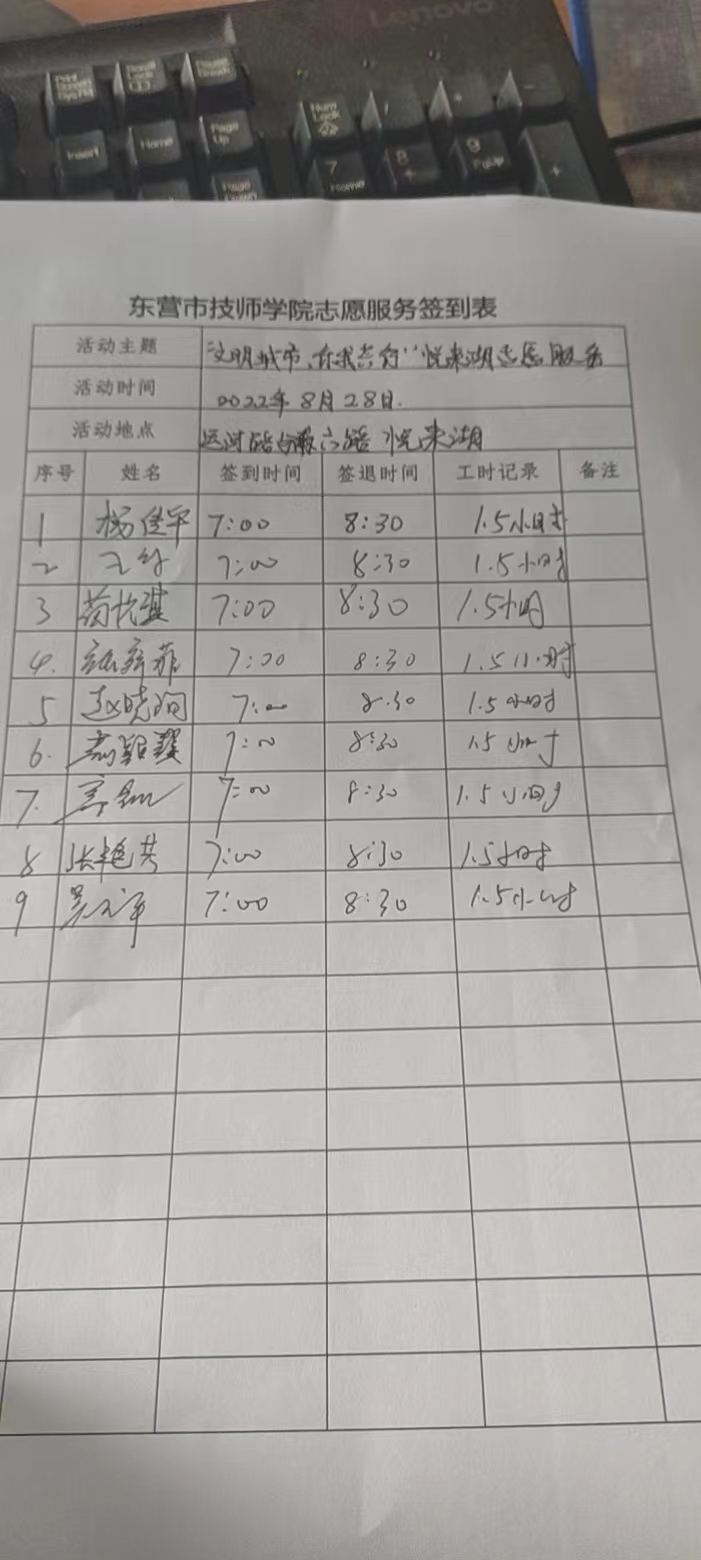 Lenovo
Print Screen SysRq
Scroll Lock
Pause Break
Num Lock
/
*
-
Insert
Home
Page Up
7 Home
8
9 PgUp
+
Page Down
东营市技师学院志愿服务签到表
活动主题 "文明城市、你我共行"悦来湖志愿服务
活动时间 2022年8月28日.
活动地点 运河路 六路 悦来湖
序号 姓名 签到时间 签退时间 工时记录 备注
1 杨佳平 7:00 8:30 1.5小时
2 7:00 8:30 1.5小时
3 7:00 8:30 1.5小时
4. 7:00 8:30 1.5小时
5 赵晓 7:00 8:30 1.5小时
6. 高 7:00 8:30 1.5小时
7. 7:00 8:30 1.5小时
8 张艳 7:00 8:30 1.5小时
9 吴 7:00 8:30 1.5小时